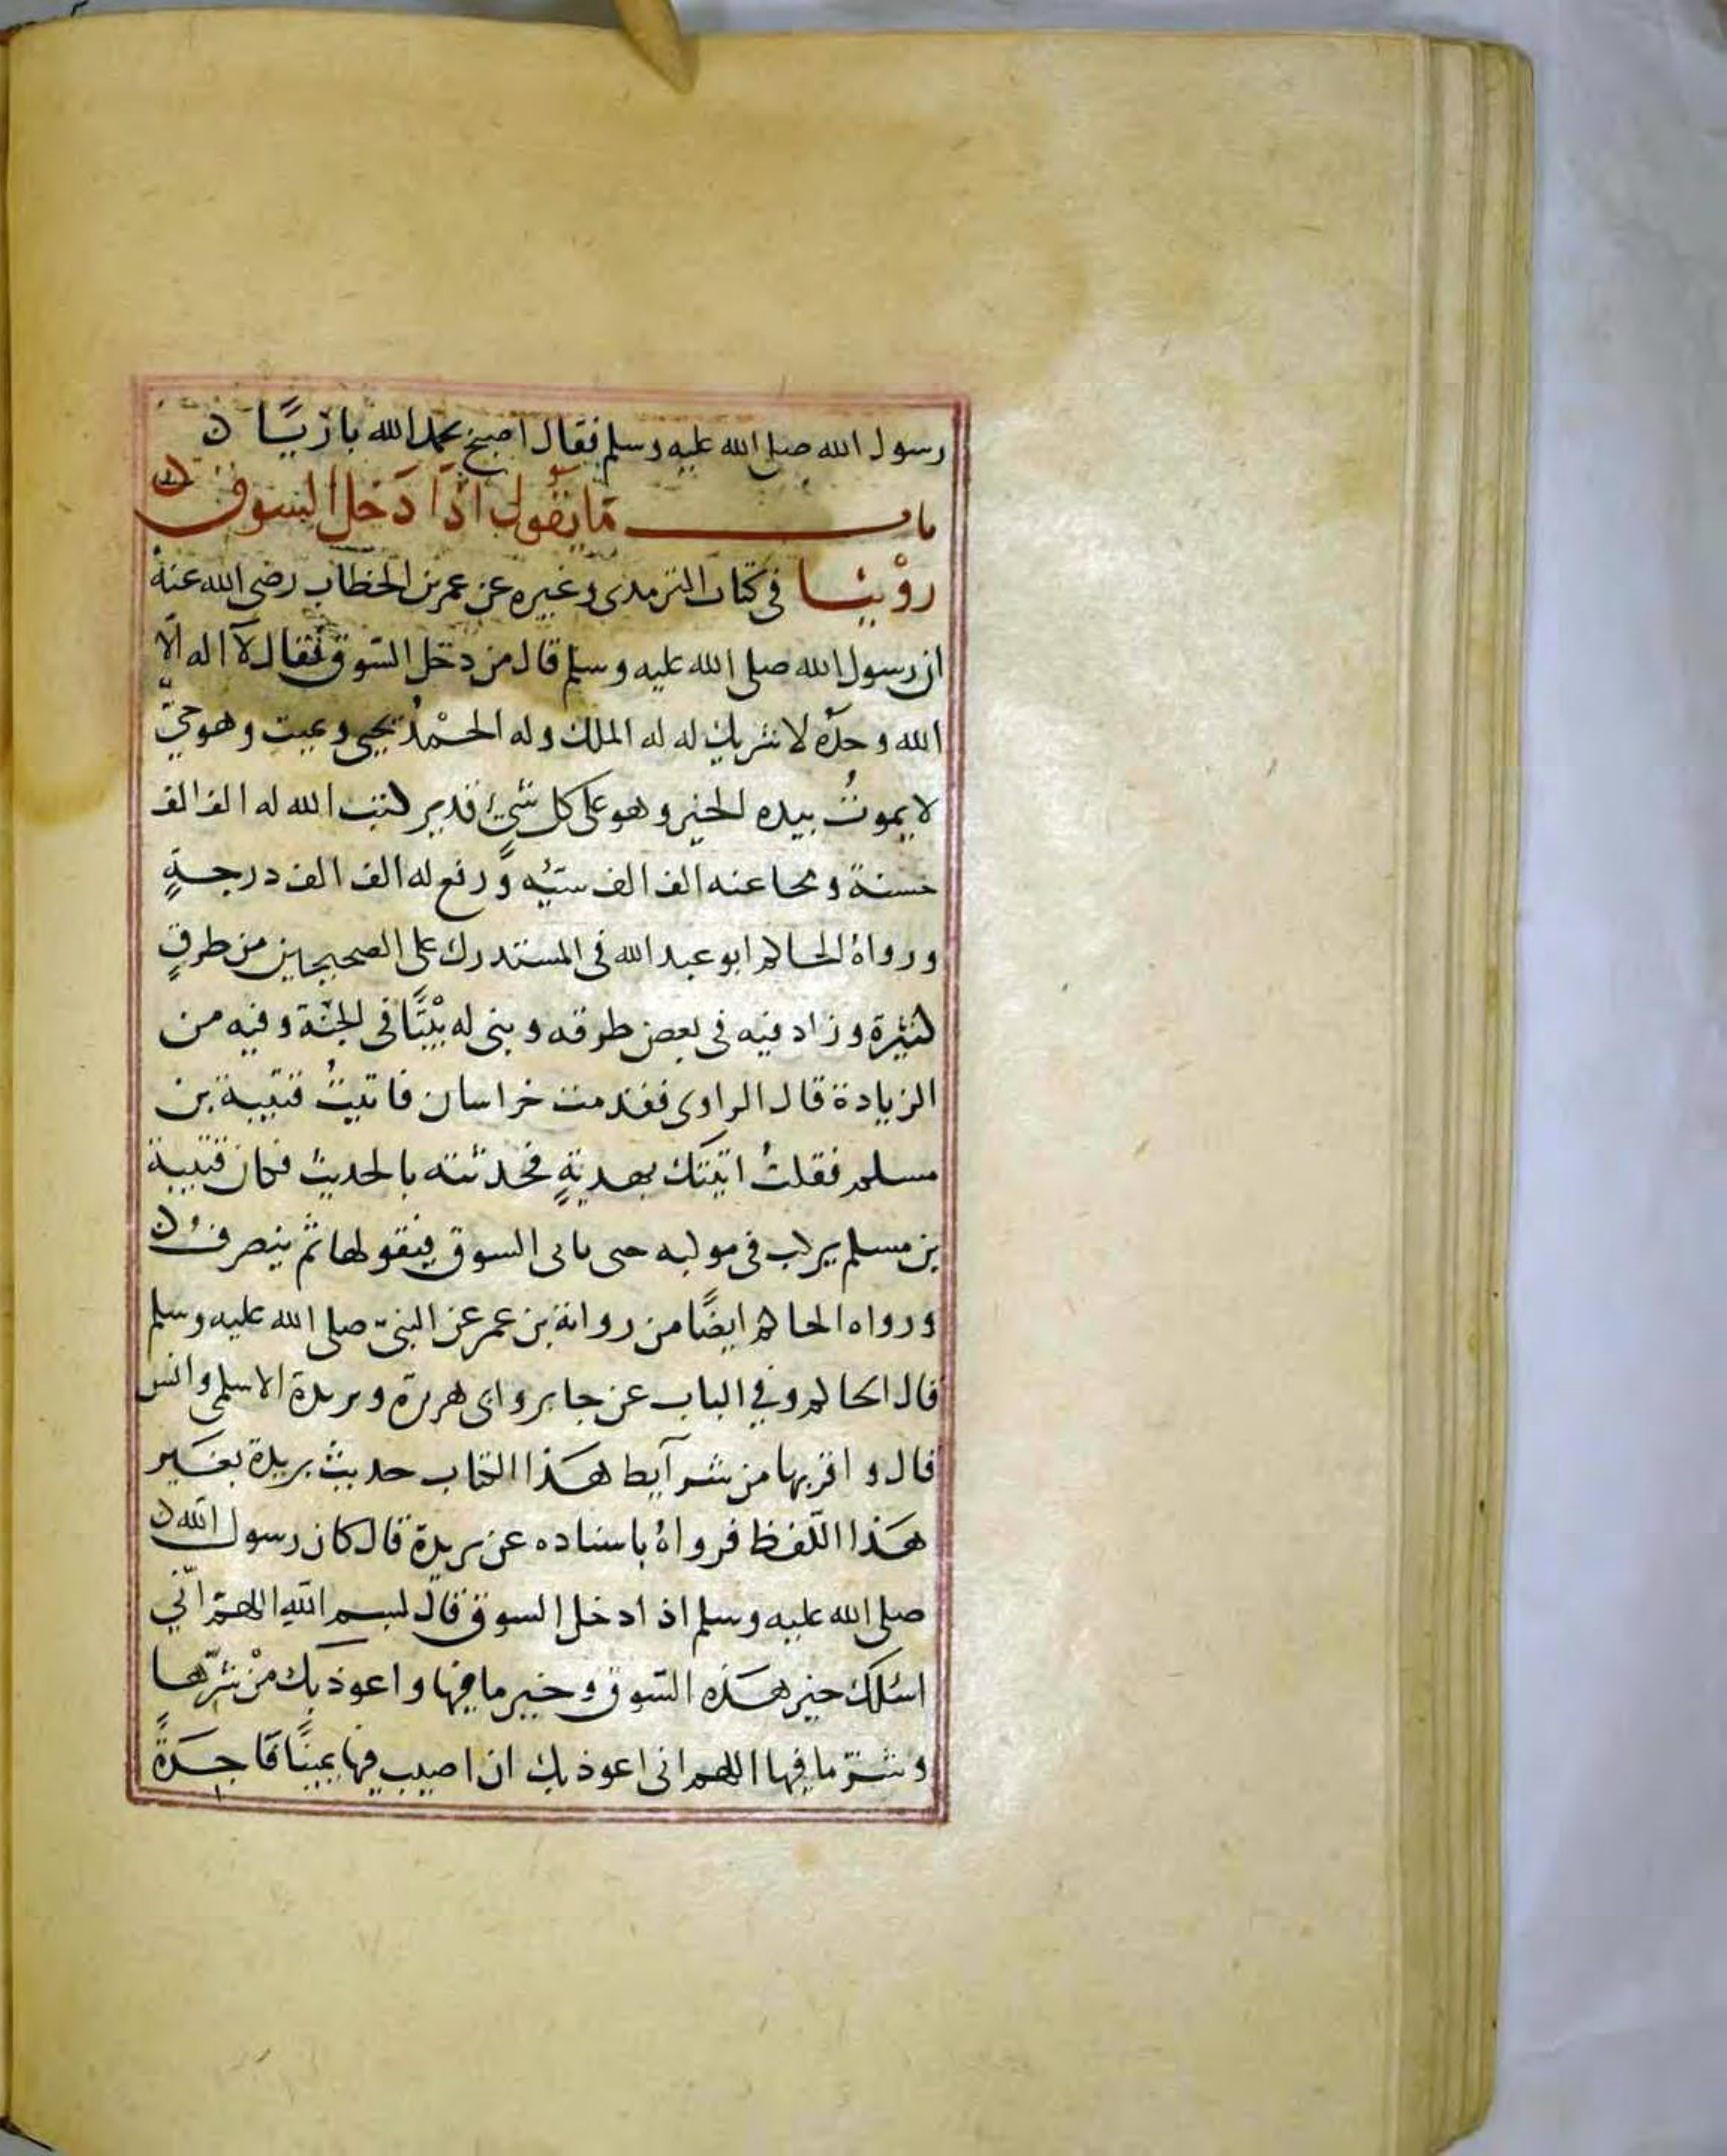 رسول الله صلى الله عليه وسلم فقال اصبح بحمد الله بارئيًا ن
باب ما يقول اذا دَخل السوق ن
روْينا فى كتاب الترمدى وغيره عن عمر بن الخطاب رضى الله عنه
ان رسول الله صلى الله عليه وسلم قال من دخل السّوق فقال لآ اله الّا
الله وحدَه لا شريك له له الملك وله الحمْدُ يحيى ويميت وهو حيّ
لا يموتُ بيده الخير وهو على كل شىءٍ قدير كتب الله له الف الف
حسنة ومحا عنه الف الف سيّئه ورفع له الف الف درجةٍ
ورواهُ الحاكم ابو عبد الله فى المستدرك على الصحيحين من طرقٍ
كثيرة وزاد فيه فى بعض طرقه وبنى له بيْتًا فى الجنّة وفيه من
الزيادة قال الراوى فقدمت خراسان فاتيتُ قتيبة بن
مسلم فقلتُ اتيتك بهديةٍ فحدثته بالحديث فكان قتيبة
بن مسلم يركب فى موكبه حتى ياتى السوق فيقولها ثم ينصرفُ ن
ورواه الحاكم ايضًا من رواية بن عمر عن النبىّ صلى الله عليه وسلم
قال الحاكم وفي الباب عن جابر وابى هريرة وبريدة الاسلمى وانس
قال واقربها من شرآيط هَذا الكتاب حديث بريدة بغَير
هَذا اللّفظ فرواهُ باسناده عن بريدة قال كان رسول الله ن
صلى الله عليه وسلم اذا دخل السوق قال بسم اللهِ اللهمّ انّي
اسئلك خير هَذه السّوق وخير ما فيها واعوذ بك منْ شرّها
وشرّ ما فيها اللهم انى اعوذ بك ان اصيب فيها يمينًا فَاجرَةً